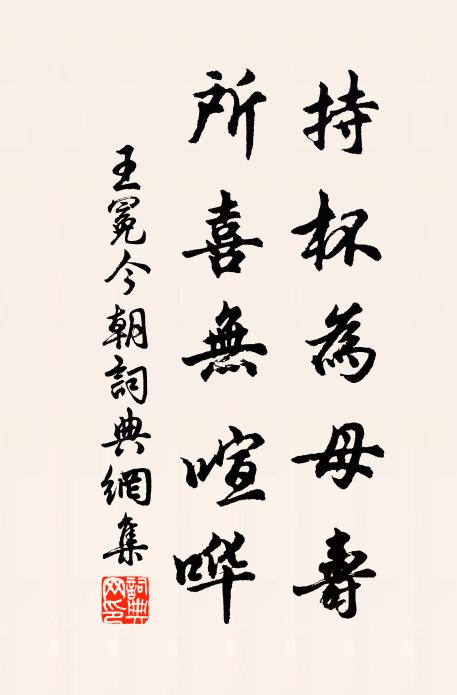 持杯為母壽
所喜無喧哗
王冕今朝詞典網集
詞典網印